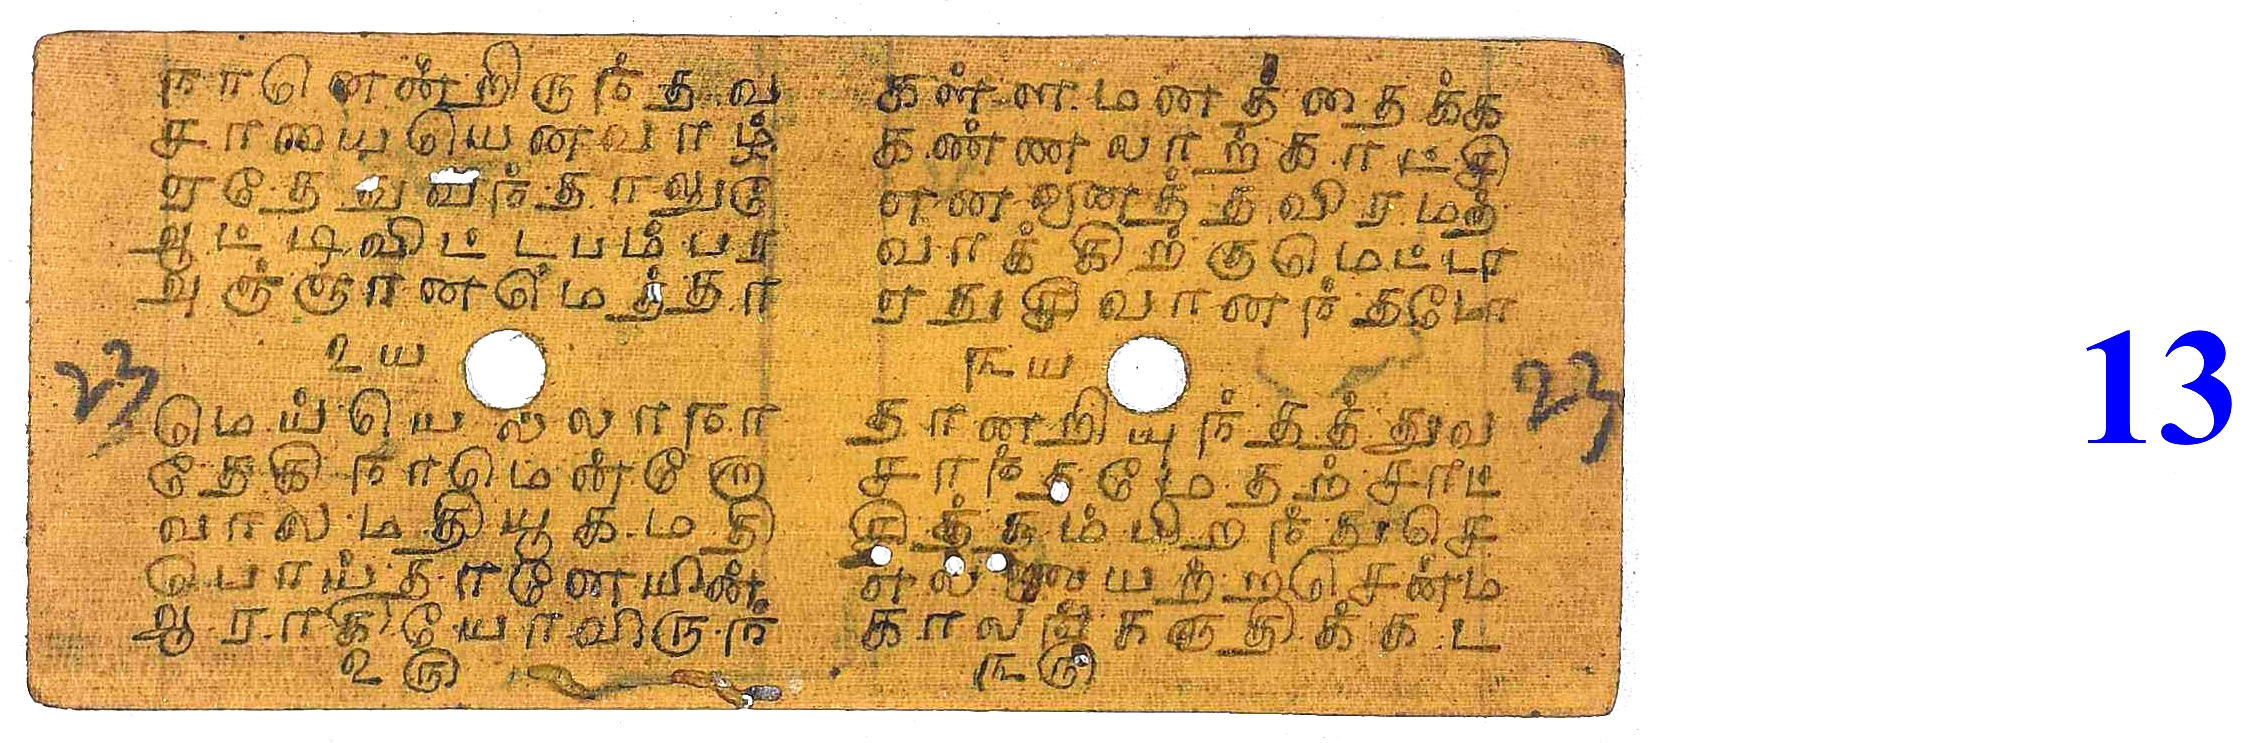 நானென்றிருந்தவ
சாயையெனவாழ்
ஏதேதுவந்தாலு
ஆட்டிவிட்டபம்பர
அஞ்ஞானமெத்தா
உய
மெய்யெல்லாநா
தேகிநாமென்றே
வாலமதியூகமதி
பொய்தானேயின்
ஆராகியோவிருந்
உரு
கள்ளமனத்தைக்க
கண்ணலாற்காட்சி
எனவனைத்தவிரமற்
வாக்கிற்குமெட்டா
ஏதுஇவானந்தமோ
ந௩ய
தானறியுந்தத்துவ
சாந்தமேதற்சாட்
இத்தகம்பிறந்துசெ
எல்லையற்றசென்ம
காலங்களுதிக்கட
௩ரு
23
23
13